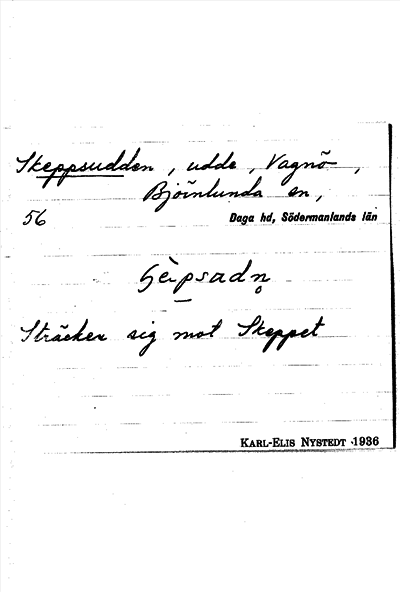 Skeppsudden, udde, Vagnö,
Björnlunda sn,
56 Daga hd, Södermanlands län
Sträcker sig mot Skeppet
KARL-ELIS NYSTEDT 1936